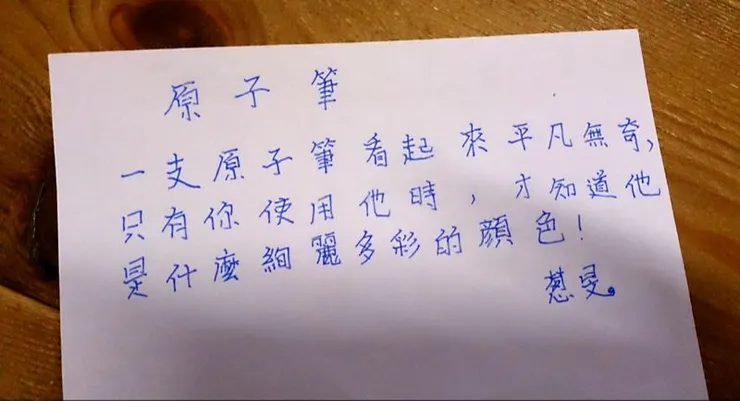 原子筆
一支原子筆看起來平凡無奇,
只有你使用他時,才知道他
是什麼絢麗多彩的顏色!